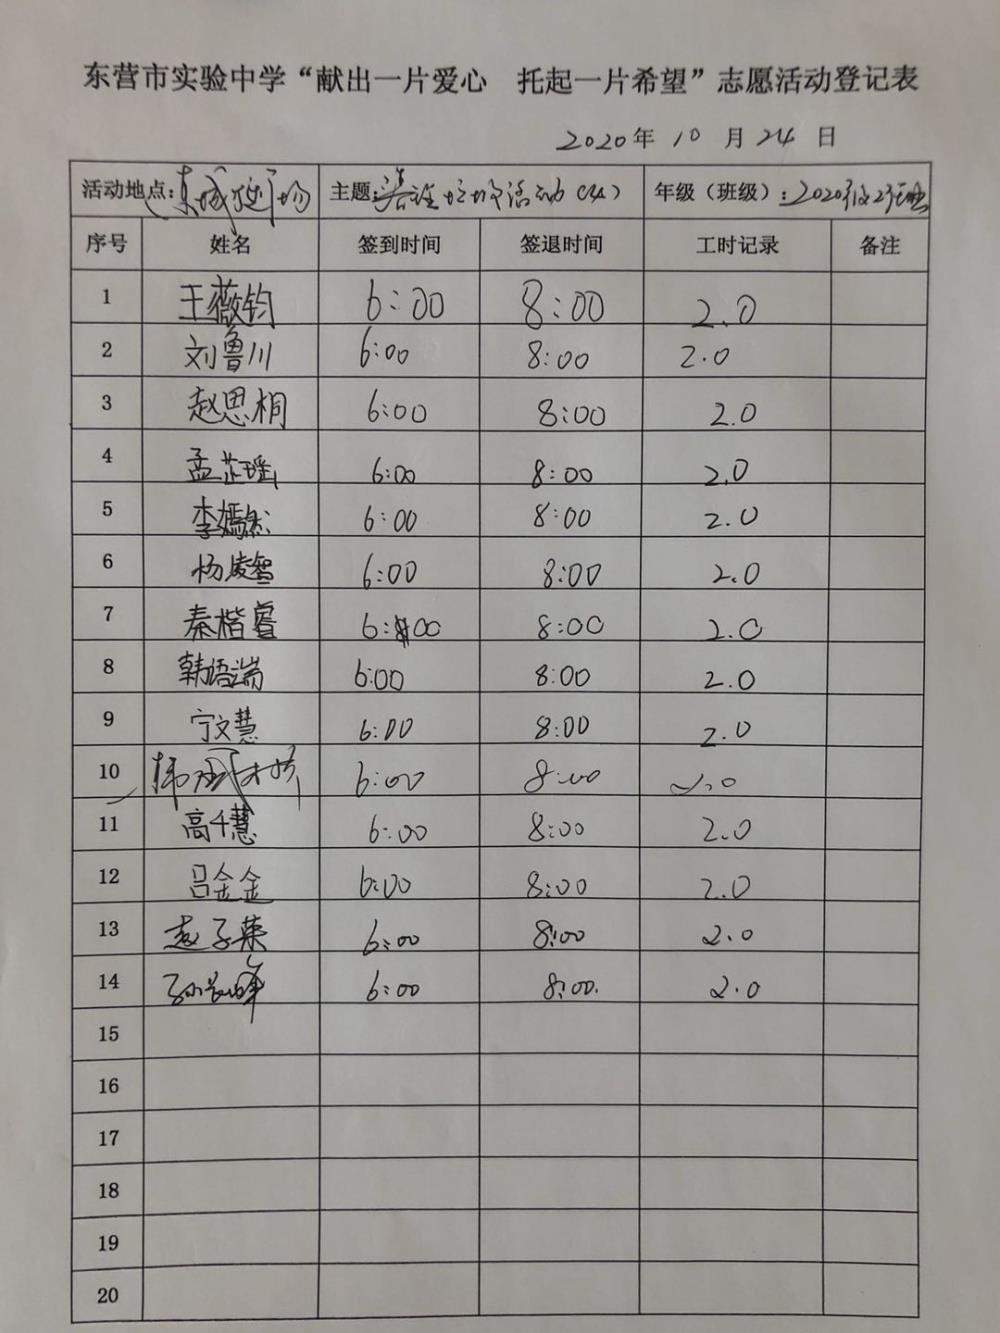 东营市实验中学“献出一片爱心 托起一片希望”志愿活动登记表
2020年 10 月 24 日
活动地点: 东城 主题: 活动(四) 年级（班级）: 2020级
序号 姓名 签到时间 签退时间 工时记录 备注
1 王薇钧 6:00 8:00 2.0
2 刘鲁川 6:00 8:00 2.0
3 赵思桐 6:00 8:00 2.0
4 孟芷瑶 6:00 8:00 2.0
5 李嫣然 6:00 8:00 2.0
6 杨凌智 6:00 8:00 2.0
7 秦楷睿 6:00 8:00 2.0
8 韩语端 6:00 8:00 2.0
9 宁文慧 6:00 8:00 2.0
10 6:00 8:00 2.0
11 高千慧 6:00 8:00 2.0
12 吕金金 6:00 8:00 2.0
13 赵子荣 6:00 8:00 2.0
14 6:00 8:00. 2.0
15
16
17
18
19
20